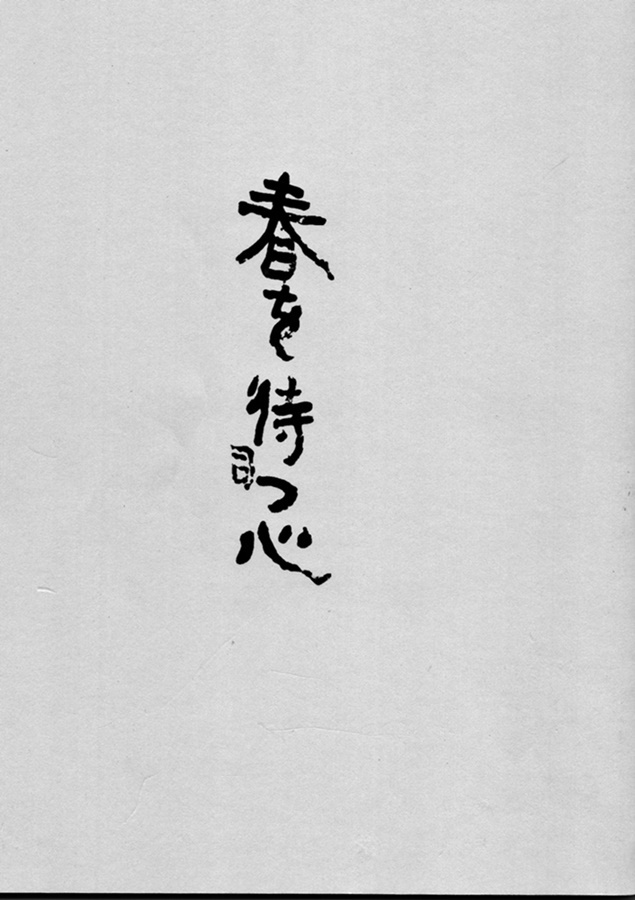 春を待つ心
司